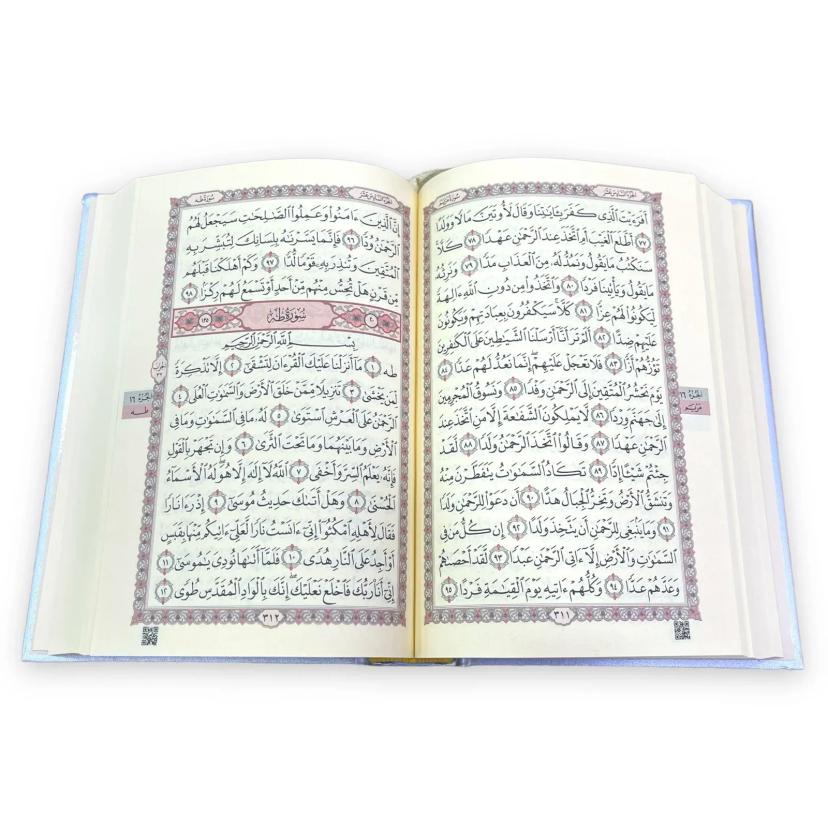 الجزء السادس عشر
سورة مريم
أفرءيت الذى كفر بـٔايتنا وقال لأوتين مالا وولدا
٧٧ أطلع الغيب أم اتخذ عند الرحمن عهدا ٧٨ كلا
سنكتب ما يقول ونمد له من العذاب مدا ٧٩ ونرثه
ما يقول ويأتينا فردا ٨٠ واتخذوا من دون الله ءالهة
ليكونوا لهم عزا ٨١ كلا سيكفرون بعبادتهم ويكونون
عليهم ضدا ٨٢ ألم تر أنا أرسلنا الشيطين على الكفرين
تؤزهم أزا ٨٣ فلا تعجل عليهم إنما نعد لهم عدا ٨٤
يوم نحشر المتقين إلى الرحمن وفدا ٨٥ ونسوق المجرمين
إلى جهنم وردا ٨٦ لا يملكون الشفعة إلا من اتخذ عند
الرحمن عهدا ٨٧ وقالوا اتخذ الرحمن ولدا ٨٨ لقد
جئتم شيـٔا إدا ٨٩ تكاد السموت يتفطرن منه
وتنشق الأرض وتخر الجبال هدا ٩٠ أن دعوا للرحمن ولدا
٩١ وما ينبغى للرحمن أن يتخذ ولدا ٩٢ إن كل من فى
السموت والأرض إلا ءاتى الرحمن عبدا ٩٣ لقد أحصىهم
وعدهم عدا ٩٤ وكلهم ءاتيه يوم القيمة فردا ٩٥
٣١١
الجزء ١٦
مريم
الجزء السادس عشر
سورة طه
إن الذين ءامنوا وعملوا الصلحت سيجعل لهم
الرحمن ودا ٩٦ فإنما يسرنه بلسانك لتبشر به
المتقين وتنذر به قوما لدا ٩٧ وكم أهلكنا قبلهم
من قرن هل تحس منهم من أحد أو تسمع لهم ركزا ٩٨
٢٠ سورة طه ١٣٥
بسم الله الرحمن الرحيم
طه ١ ما أنزلنا عليك القرءان لتشقى ٢ إلا تذكرة
لمن يخشى ٣ تنزيلا ممن خلق الأرض والسموت العلى ٤
الرحمن على العرش استوى ٥ له ما فى السموت وما فى
الأرض وما بينهما وما تحت الثرى ٦ وإن تجهر بالقول
فإنه يعلم السر وأخفى ٧ الله لا إله إلا هو له الأسماء
الحسنى ٨ وهل أتىك حديث موسى ٩ إذ رءا نارا
فقال لأهله امكثوا إنى ءانست نارا لعلى ءاتيكم منها بقبس
أو أجد على النار هدى ١٠ فلما أتىها نودى يموسى ١١
إنى أنا ربك فاخلع نعليك إنك بالواد المقدس طوى ١٢
٣١٢
الجزء ١٦
طه